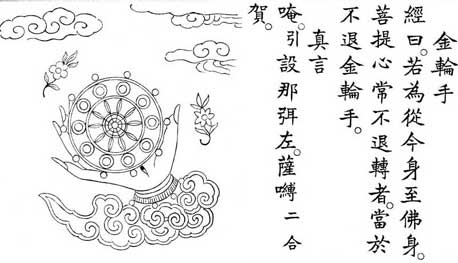 金輪手
經曰。若為從今身至佛身。
菩提心常不退轉者。當於
不退金輪手。
真言
唵。引設那弭左。薩嚩二合
賀。